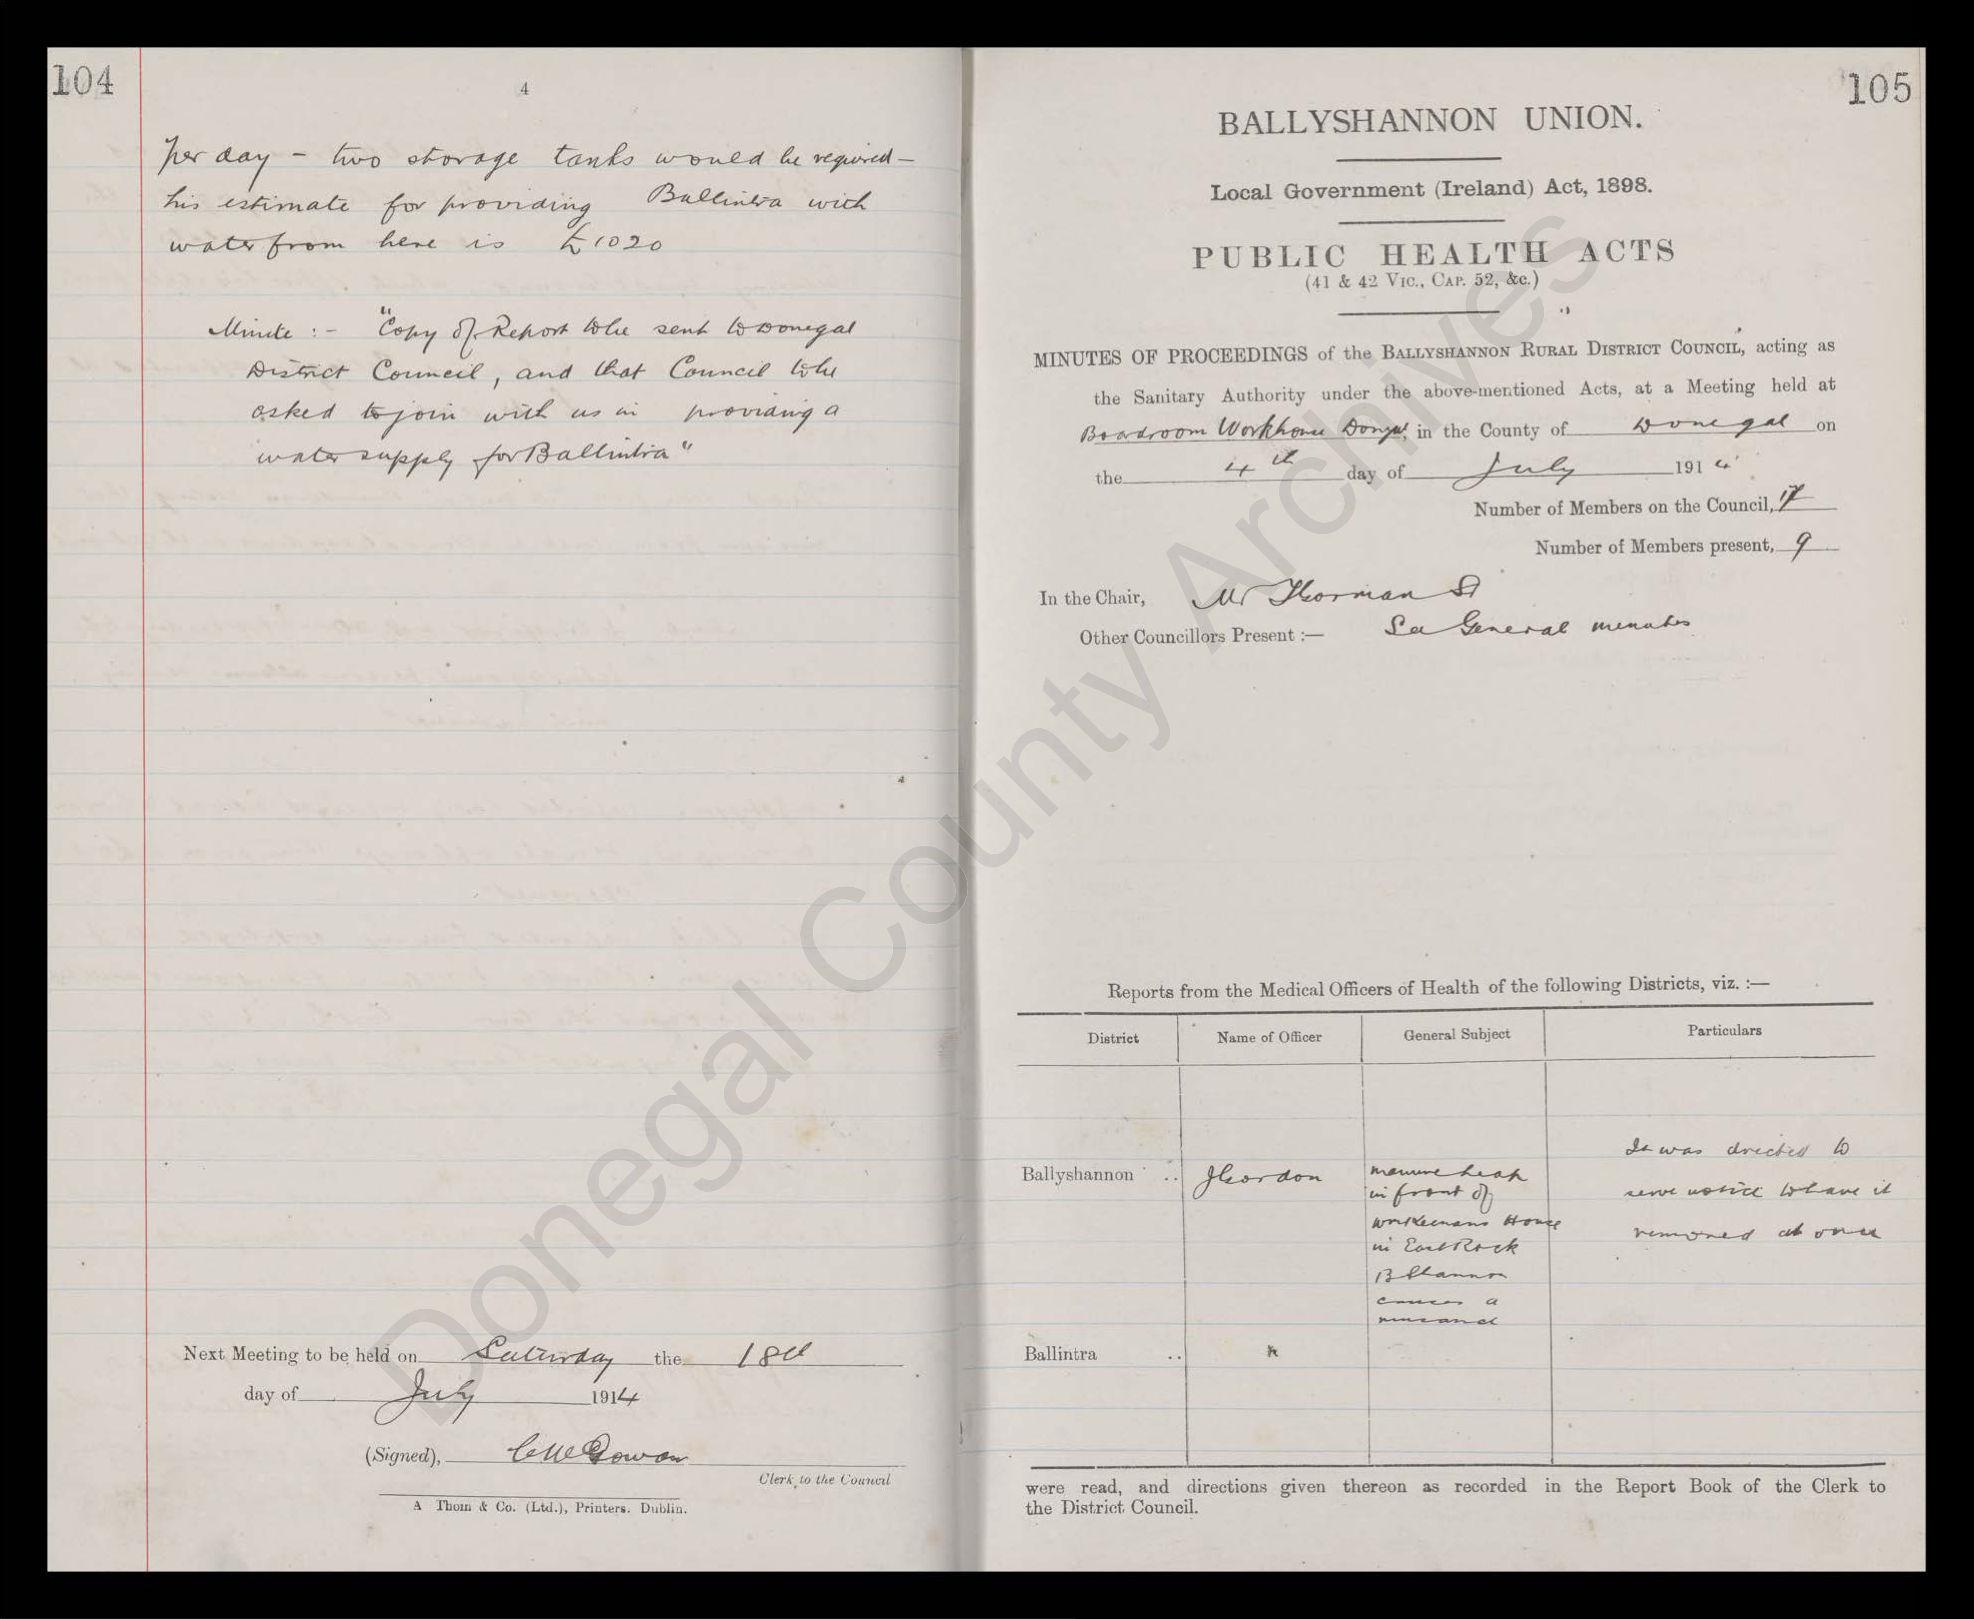 104
4
per day - two storage tanks would be required -
his estimate for providing Ballintra with
water from here is £1020
Minute :- "Copy of Report to be sent to Donegal
District Council, and that Council to be
asked to join with us in providing a
water supply for Ballintra"
Next Meeting to be held on Saturday the 18th
day of July 1914
(Signed), C McGowan
Clerk to the Council
A Thom & Co. (Ltd.), Printers. Dublin.
105
BALLYSHANNON UNION.
Local Government (Ireland) Act, 1898.
PUBLIC HEALTH ACTS
(41 & 42 Vic., Cap. 52, &c.)
MINUTES OF PROCEEDINGS of the Ballyshannon Rural District Council, acting as
the Sanitary Authority under the above-mentioned Acts, at a Meeting held at
Boardroom Workhouse in the County of Donegal on
the 4th day of July 1914
Number of Members on the Council, 17
Number of Members present, 9
In the Chair, Mr
Other Councillors Present :— See General minutes
Reports from the Medical Officers of Health of the following Districts, viz. :—
District Name of Officer General Subject Particulars
Ballyshannon .. J Gordon
manure heap
in front of
House
in East Rock
B Shannon
causes a
It was directed to
serve notice to have it
removed at once
Ballintra ..
were read, and directions given thereon as recorded in the Report Book of the Clerk to
the District Council.
Donegal County Archives